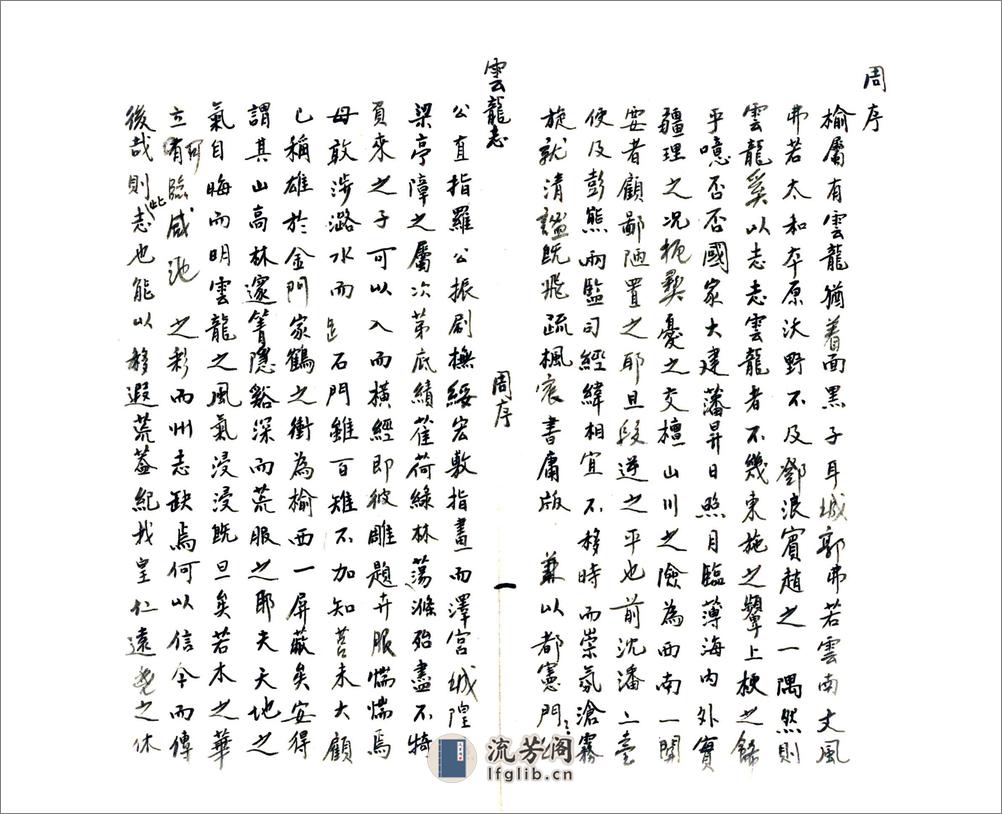 周序
榆屬有雲龍猶着面黑子耳城郭弗若雲南文風
弗若太和卒原沃野不及鄧浪賓趙之一隅然則
雲龍奚以志志雲龍者不幾東施之顰上梗之餙
乎噫否否國家大建藩昇日照月臨薄海內外實
疆理之况扼彝憂之交檀山川之險為西南一関
要者顧鄙陋置之耶旦段逆之平也前沈潘二臺
使及彭熊兩監司經緯相宜不移時而崇氛滄霧
旋就清謐既飛疏楓宸書庸版 兼以都憲門
雲龍志
周序
公直指羅公振刷撫綏宏敷指畫而澤宮城隍
梁亭障之屬次第底績萑荷綠林蕩滌殆盡不犄
員來之子可以入而橫經即彼雕題卉服惴惴焉
母敢涉潞水而 石門雖百雉不加知莒未大顧
已稱雄於金門家鶴之衝為榆西一屏蔽矣安得
謂其山高林邃箐隱谿深而荒服之耶夫天地之
氣自晦而明雲龍之風氣浸浸既旦矣若木之華
立有可臨咸池 之彩而州志缺焉何以信今而傳
後哉則此志也能以移遐荒蓋紀我皇仁遠覺之休
流芳阁
lfglib.cn